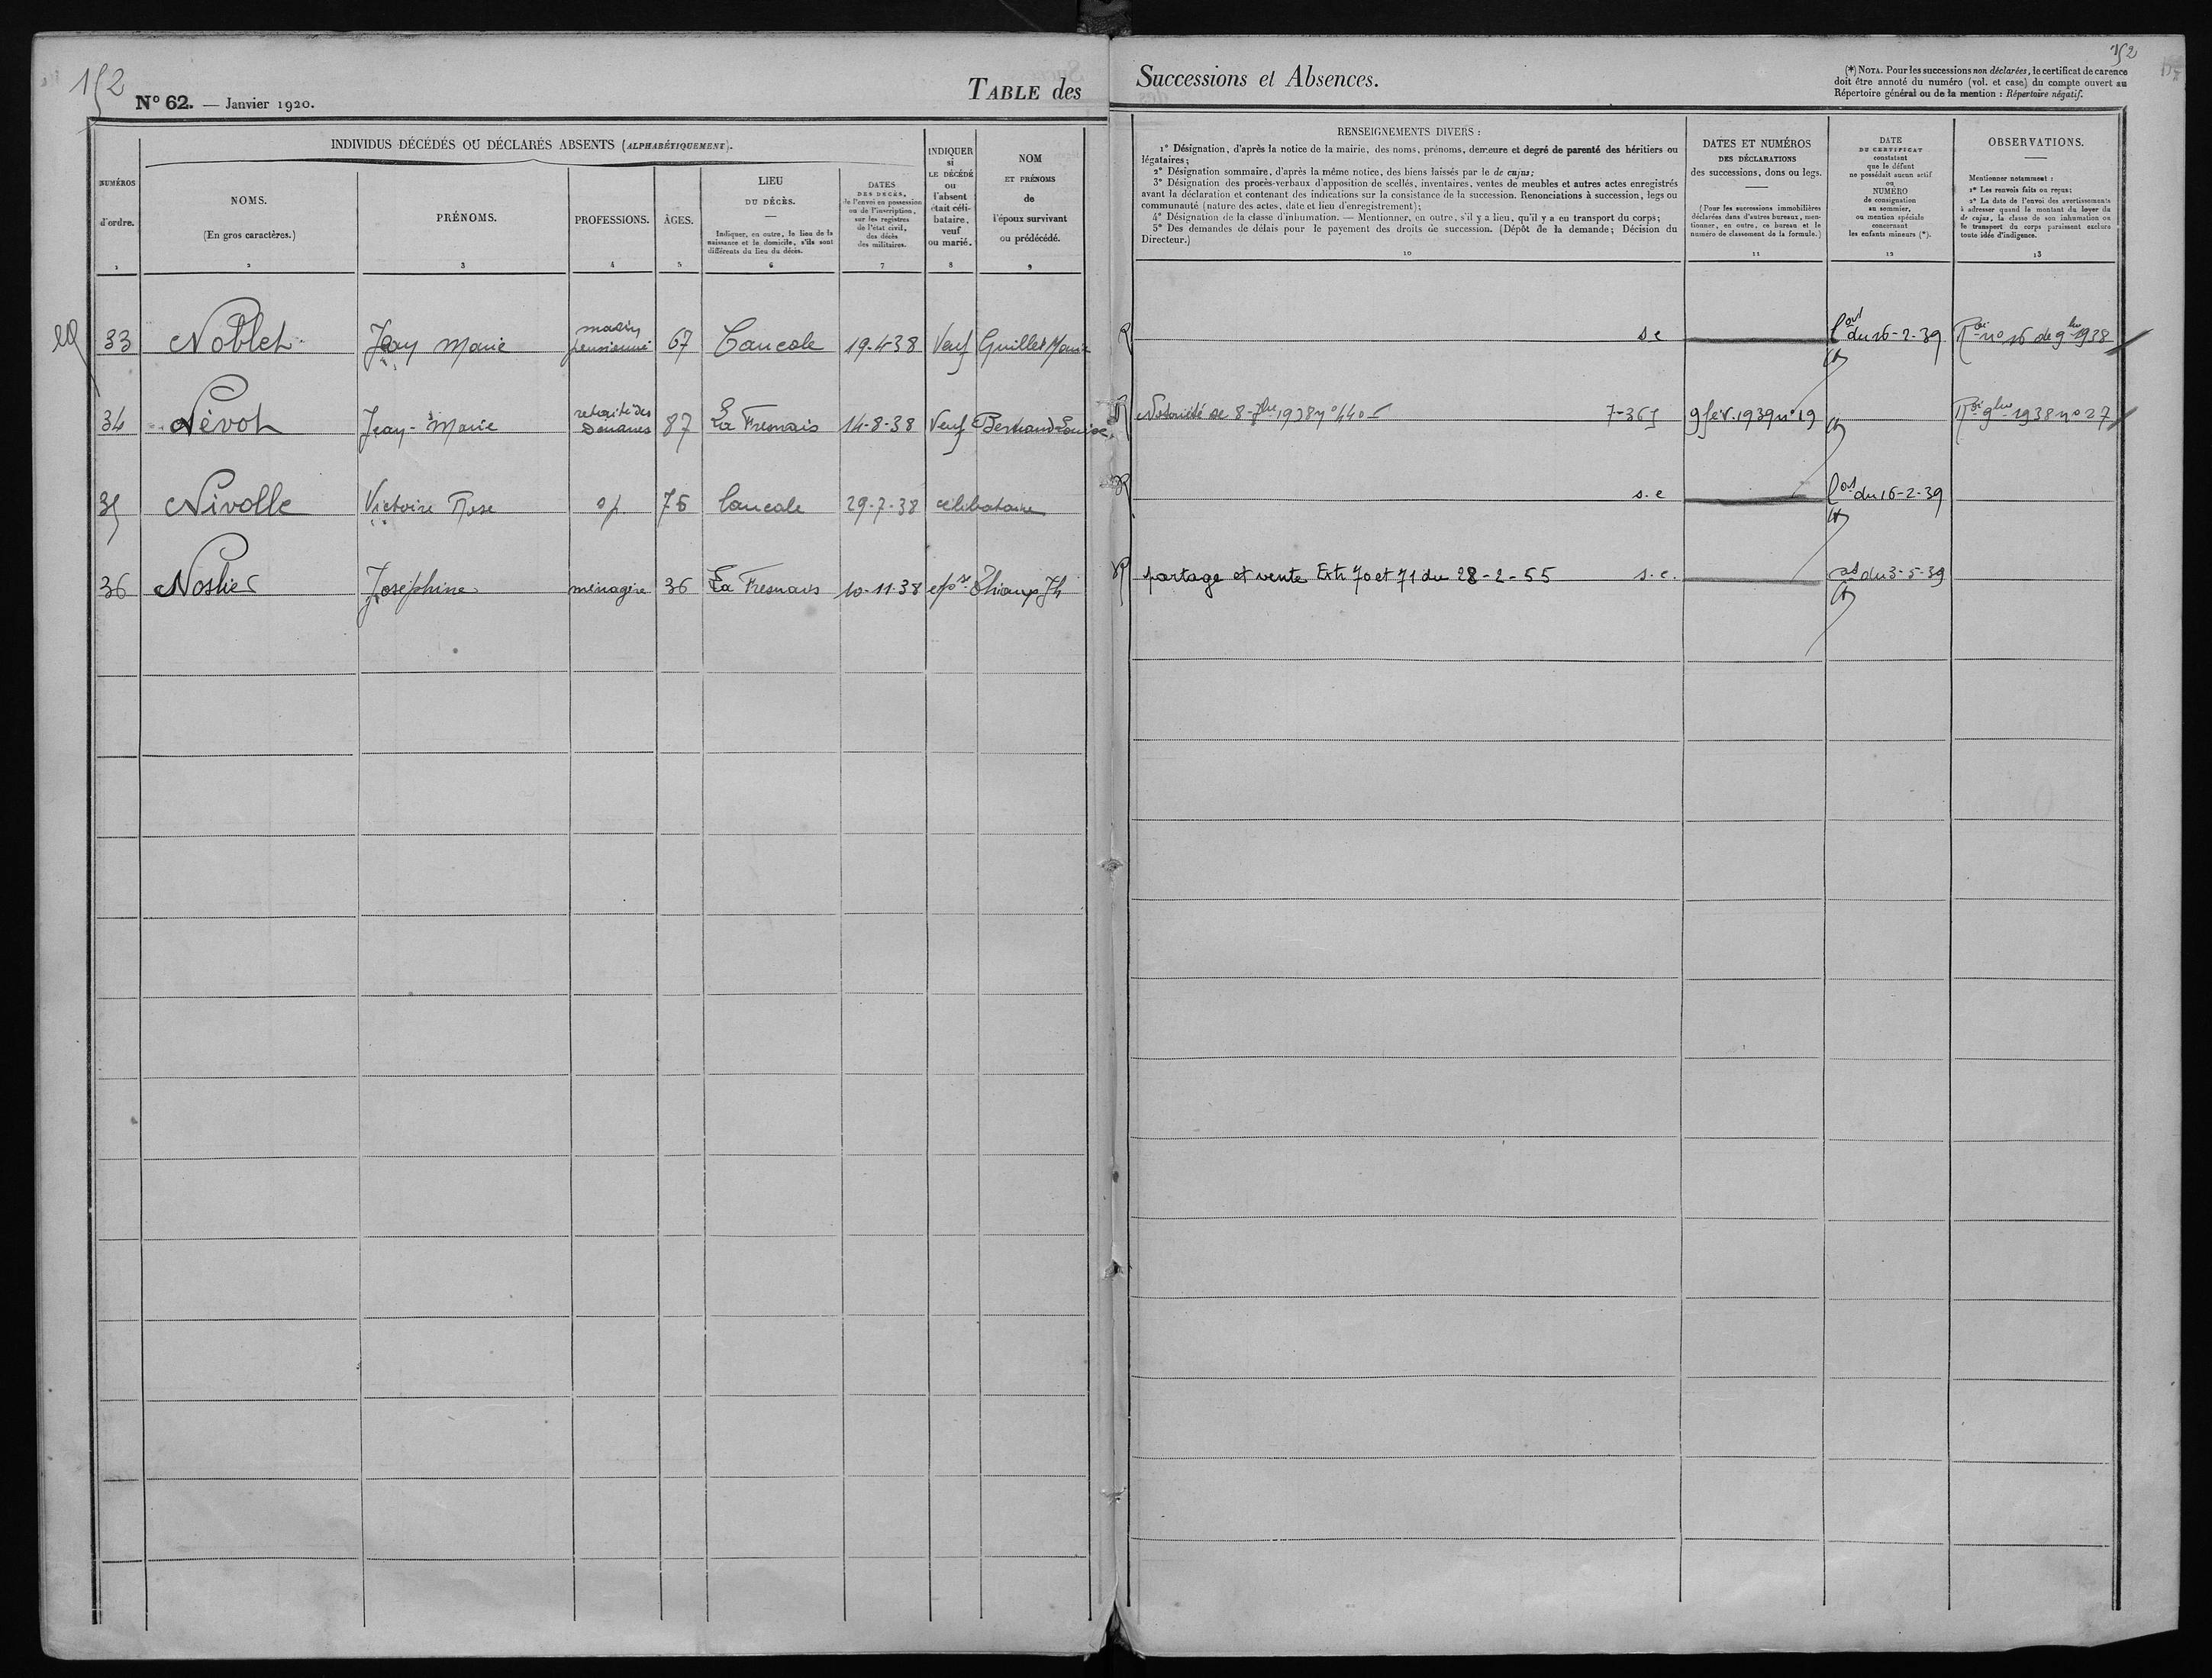 152
N° 62. — Janvier 1920.
TABLE des
Successions et Absences.
152
(*) NOTA. Pour les successions non déclarées, le certificat de carence
doit être annoté du numéro (vol. et case) du compte ouvert au
Répertoire général ou de la mention : Répertoire négatif.
INDIVIDUS DÉCÉDÉS OU DÉCLARÉS ABSENTS (ALPHABÉTIQUEMENT).
NUMÉROS
d'ordre.
1
NOMS.
(En gros caractères.)
2
PRÉNOMS.
3
PROFESSIONS.
4
ÂGES.
5
LIEU
DU DÉCÈS.
Indiquer, en outre, le lieu de la
naissance et le domicile, s'ils sont
différents du lieu du décès.
6
DATES
DES DÉCÈS,
de l'envoi en possession
ou de l'inscription,
sur les registres
de l'état civil,
des décès
des militaires.
7
INDIQUER
si
LE DÉCÉDÉ
ou
l'absent
était céli-
bataire,
veuf
ou marié.
8
NOM
ET PRÉNOMS
de
l'époux survivant
ou prédécédé.
9
RENSEIGNEMENTS DIVERS :
1° Désignation, d'après la notice de la mairie, des noms, prénoms, demeure et degré de parenté des héritiers ou
légataires;
2° Désignation sommaire, d'après la même notice, des biens laissés par le de cujus;
3° Désignation des procès-verbaux d'apposition de scellés, inventaires, ventes de meubles et autres actes enregistrés
avant la déclaration et contenant des indications sur la consistance de la succession. Renonciations à succession, legs ou
communauté (nature des actes, date et lieu d'enregistrement);
4° Désignation de la classe d'inhumation. — Mentionner, en outre, s'il y a lieu, qu'il y a eu transport du corps;
5° Des demandes de délais pour le payement des droits de succession. (Dépôt de la demande; Décision du
Directeur.)
10
DATES ET NUMÉROS
DES DÉCLARATIONS
des successions, dons ou legs.
(Pour les successions immobilières
déclarées dans d'autres bureaux, men-
tionner, en outre, ce bureau et le
numéro de classement de la formule.)
11
DATE
DU CERTIFICAT
constatant
que le défunt
ne possédait aucun actif
ou
NUMÉRO
de consignation
au sommier,
ou mention spéciale
concernant
les enfants mineurs (*).
12
OBSERVATIONS.
Mentionner notamment :
1° Les renvois faits ou reçus;
2° La date de l'envoi des avertissements
à adresser quand le montant du loyer du
de cujus, la classe de son inhumation ou
le transport du corps paraissent exclure
toute idée d'indigence.
13
33 Noblet Jean Marie marin pensionné 67 Cancale 19-4-38 Veuf Guillet Marie s c du 16-2-39 n° 16 de 9bre 1938
34 Névot Jean-Marie retraité des Douanes 87 La Fresnais 14-8-38 Veuf Bertrand Louise Notoriété 7-365 9 fév. 1939 n° 19 9bre 1938 n° 27
35 Nivolle Victoire Rose sp 75 Cancale 29-7-38 célibataire s.c du 16-2-39
36 Joséphine ménagère 36 La Fresnais 10-11-38 partage et vente Extr 70 et 71 du 28-2-55 s.c. du 3-5-39